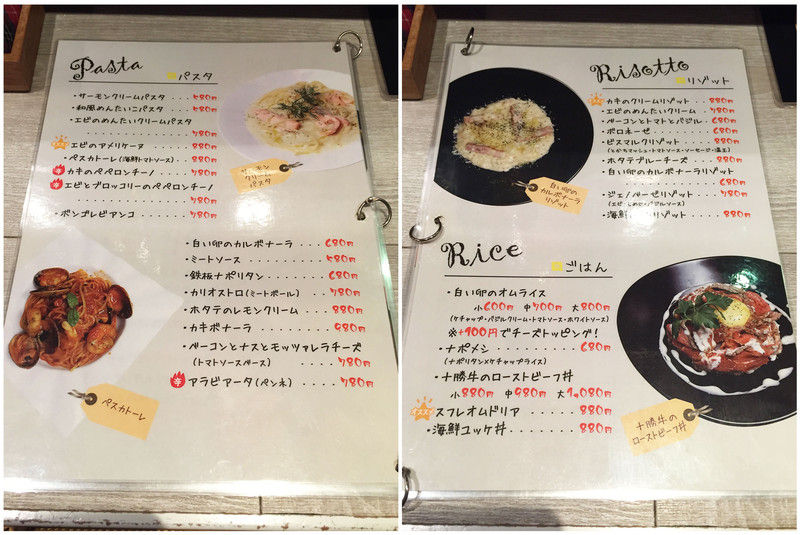 Pasta パスタ
・サーモンクリームパスタ ... 580円
・和風めんたいこパスタ ... 580円
・エビのめんたいクリームパスタ
........ 780円
エビのアメリケーヌ ..... 880円
・ペスカトーレ(海鮮トマトソース) .. 880円
辛 カキのペペロンチーノ .... 780円
辛 エビとブロッコリーのペペロンチーノ
........ 780円
・ボンゴレビアンコ .... 780円
サーモン
クリーム
パスタ
・白い卵のカルボナーラ ... 680円
・ミートソース ....... 580円
・鉄板ナポリタン ..... 680円
・カリオストロ(ミートボール) ... 780円
・ホタテのレモンクリーム .... 880円
・カキボナーラ ....... 980円
・ベーコンとナスとモッツァレラチーズ
(トマトソースベース) ..... 780円
辛 アラビアータ(ペンネ) .... 780円
ペスカトーレ
Risotto リゾット
カキのクリームリゾット .. 880円
・エビのめんたいクリーム .. 780円
・ベーコンとトマトとバジル 680円
・ボロネーゼ ....... 680円
・ビスマルクリゾット .... 880円
・ホタテブルーチーズ ... 880円
・白い卵のカルボナーラリゾット
........ 680円
・ジェノベーゼリゾット ... 780円
・海鮮 リゾット .... 880円
白い卵の
カルボナーラ
リゾット
Rice ごはん
・白い卵のオムライス
小600円 中700円 大800円
(ケチャップ・バジルクリーム・トマトソース・ホワイトソース)
※+100円でチーズトッピング!
・ナポメシ ........ 680円
(ナポリタン×ケチャップライス)
・十勝牛のローストビーフ丼
小880円 中980円 大1,080円
オススメ スフレオムドリア ..... 880円
・海鮮ユッケ丼 ....... 880円
十勝牛の
ローストビーフ丼